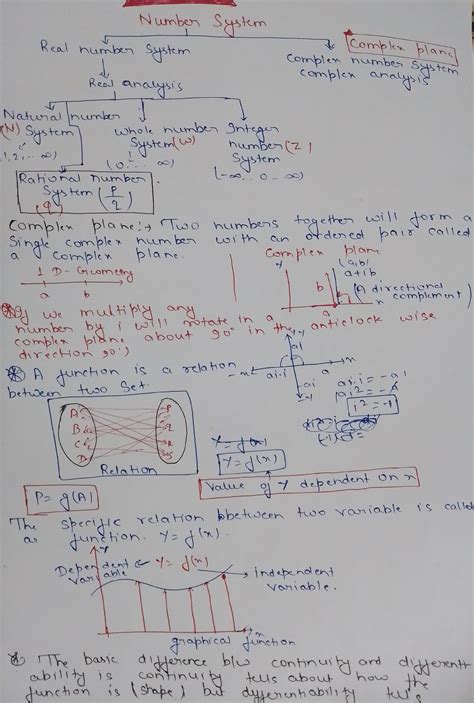 Number System
Real number System
Complex plane
Complex number System
complex analysis
Real analysis
Natural number
(N) System
1, 2, ... ∞)
whole number
System (W)
(0 ... ∞)
Integer
number (Z)
System
[-∞.. 0 - ∞)
Rational number
System (P/2)
(q)
Complex plane:→ Two numbers together will form a
Single complex number with an ordered pair called
a complex plane.
1 D-Geometry
a b
Complex plane
y
(a,b)
a+ib
b
(A directional
complement)
a
x
If we multiply any
number by i will rotate in a
complex plane about 90° in the anticlock wise
direction 90°)
A function is a relation
between two Set.
A
B
C
D
P
Q
R
S
Relation
ai.i = -a
i² = -1
Y = f(x)
Y = f(x)
P = g(A)
Value of Y dependent on x
The specific relation bbetween two variable is called
as function. Y = f(x).
Y
Dependent
Variable
Y = f(x)
independent
variable.
x
graphical function
The basic difference b/w continuity and different-
ability is continuity tells about how the
function is (shape) but differentiability tells